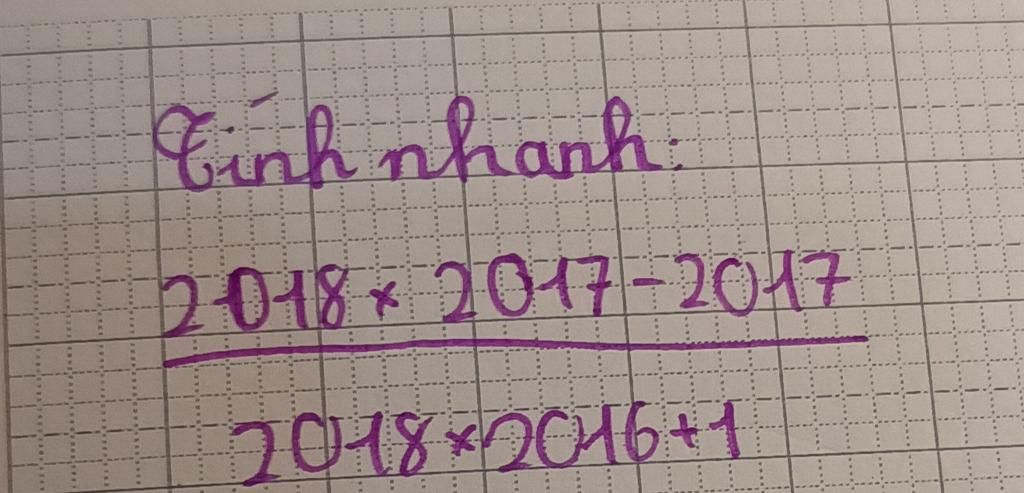 Tính nhanh:
2018 × 2017 - 2017
2018 × 2016 + 1